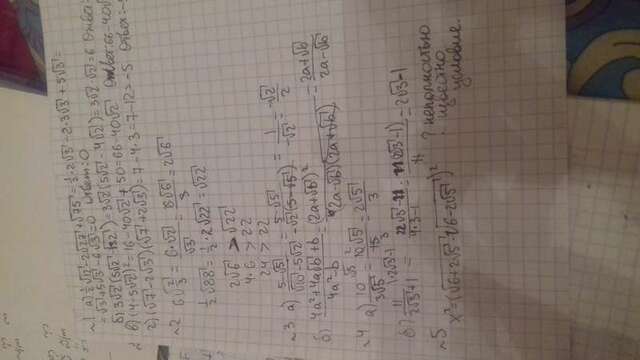 ~1 а) ½√12 - 2√27 + √75 = ½·2√3 - 2·3√3 + 5√3 =
= √3 + 5√3 - 6√3 = 0 Ответ: 0
б) 3√2(5√2 - √32) = 3√2(5√2 - 4√2) = 3√2·√2 = 6 Ответ:
в) (4-5√2)² = 16 - 40√2 + 50 = 66-40√2 Ответ: 66-40√
г) (√7 - 2√3)(√7 + 2√3) = 7-4·3 = 7-12 = -5 Ответ: -
~2 6√⅔ = 6·√2/√3 = 6√6/3 = 2√6
½√88 = ½·2√22 = √22
2√6 > √22
4·6 > 22
24 > 22
~3 а) (5-√5)/(√10-5√2) = (5-√5)/(-√2(5-√5)) = 1/(-√2) = -√2/2
б) (4a²+4a√b+b)/(4a²-b) = (2a+√b)²/((2a-√b)(2a+√b)) = (2a+√b)/(2a-√b)
~4 а) 10/(3√5) = 10√5/15 = 2√5/3
б) 11/(2√3+1) = (22√3-11)/(4·3-1) = 11(2√3-1)/11 = 2√3-1
~5
x² = (√6+2√5 - √6-2√5)²
? неполностью
известно
условие.